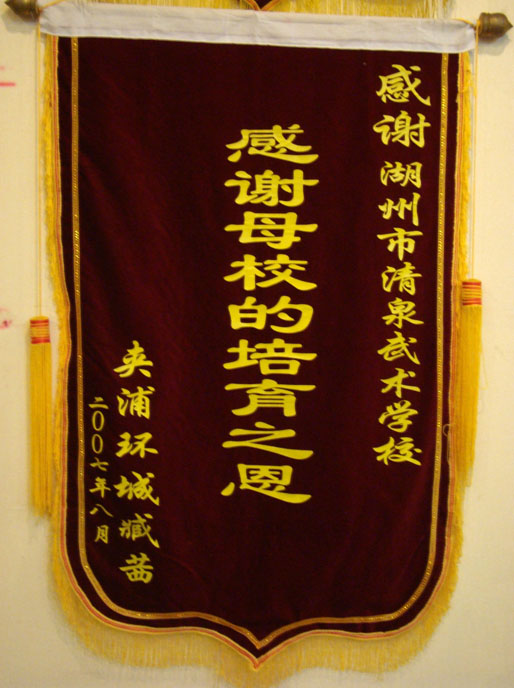 感谢湖州市清泉武术学校
感谢母校的培育之恩
夹浦环城臧茜
二00七年八月